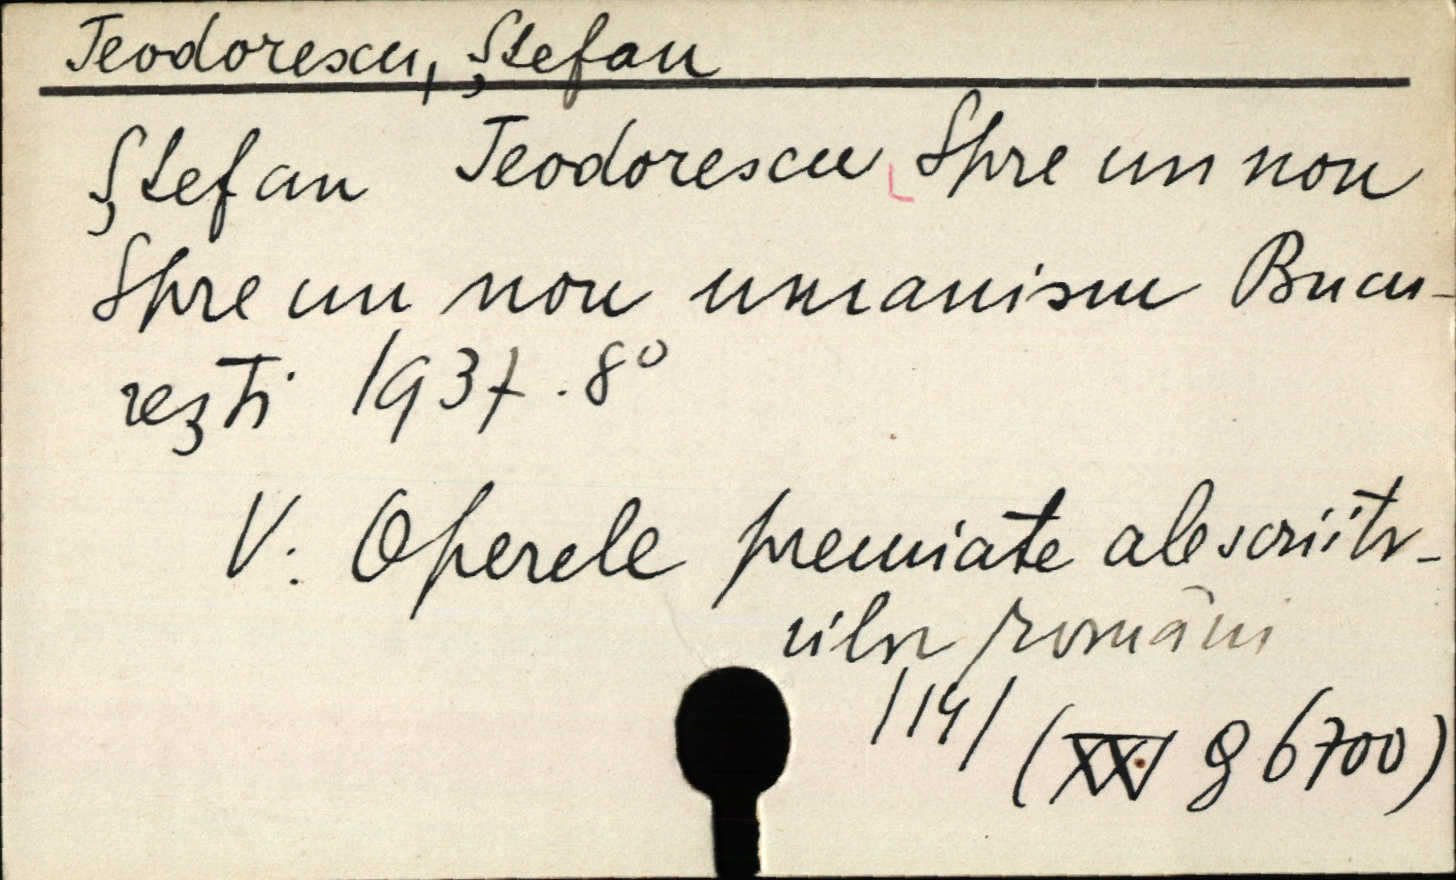 Teodorescu, Ștefan
Ștefan Teodorescu Spre un nou
Spre un nou umanism Bucu-
rești 1937. 8°
V. Operele premiate ale scriito-
rilor români
/14/
(XXV g 6700)